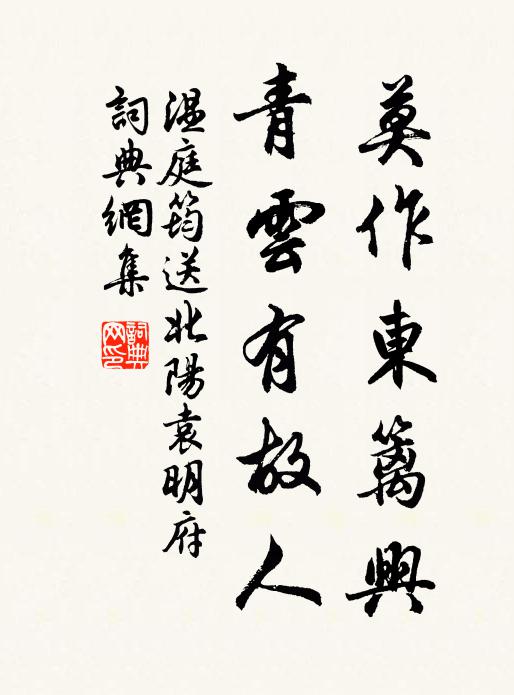 莫作東籬興
青雲有故人
温庭筠送北陽袁明府
詞典網集
詞典网印